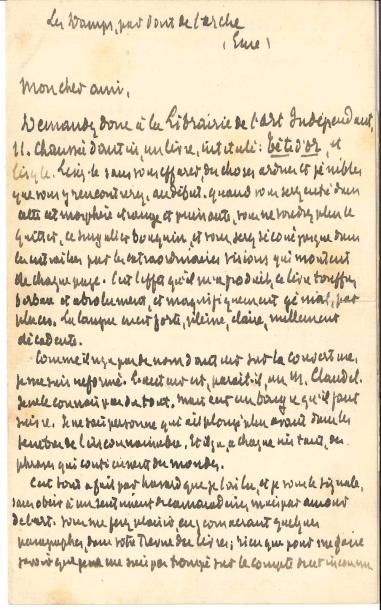 Les Damps, par Pont de l'arche
(Eure)
Mon cher ami,
Demandez donc à la Librairie de l'Art Indépendant,
11. Chaussée d'antin, un livre, intitulé: Tête d'or, et
lisez le. Lisez-le sans vous effarer des choses ardues et pénibles
que vous y rencontrerez, au début. quand vous serez entré dans
cette atmosphère étrange et puissante, vous ne voudrez plus le
quitter, ce singulier bouquin, et vous serez secoué jusque dans
les entrailles par les extraordinaires visions qui montent
de chaque page. C'est l'effet qu'il m'a produit, ce livre touffu,
barbare et absolument, et magnifiquement génial, par
places. La langue en est forte, pleine, claire, nullement
décadente.
Comme il n'y a pas de nom d'auteur sur la couverture,
je me suis informé. L'auteur est, paraît-il, un M. Claudel.
Je ne le connais pas du tout. Mais c'est un bougre qu'il faut
suivre. Je ne sais personne qui ait plongé plus avant dans les
ténèbres de l'inconnaissable. Et il y a à chaque instant, des
phrases qui contiennent des mondes.
C'est tout à fait par hasard que je l'ai lu, et je vous le signale,
sans obéir à un sentiment de camaraderie, mais par amour
de l'art. Vous me ferez plaisir en y consacrant quelques
paragraphes, dans votre Revue des livres; rien que pour me faire
savoir que je ne me suis pas trompé sur le compte de cet inconnu